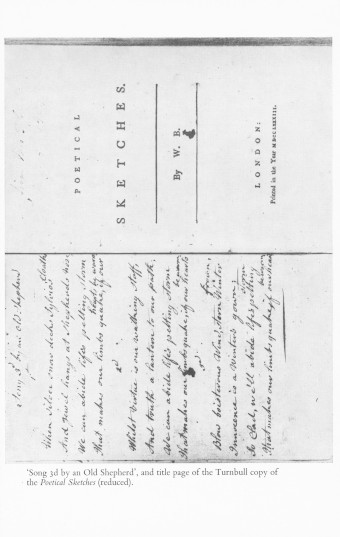 POETICAL
SKETCHES.
By W. B.
LONDON:
Printed in the Year MDCCLXXXIII.
Song 3d by an old Shepherd
When silver snow decks Sylvios
And jewel hangs at Shepherds nose
We can abide lifes pelting Storm
That makes our limbs quake, if our
hearts be warm
Whilst Virtue is our walking staff,
And truth a lantern to our path,
We can abide lifes pelting Storm
be warm
That makes our limbs quake, if our hearts
Blow boisterous Wind, stern Winter
frown,
Innocence is a Winters gown;
So Clad, we'll abide lifes pelting
Storm
That makes our limbs quake, if our hearts
be warm
'Song 3d by an Old Shepherd', and title page of the Turnbull copy of
the Poetical Sketches (reduced).